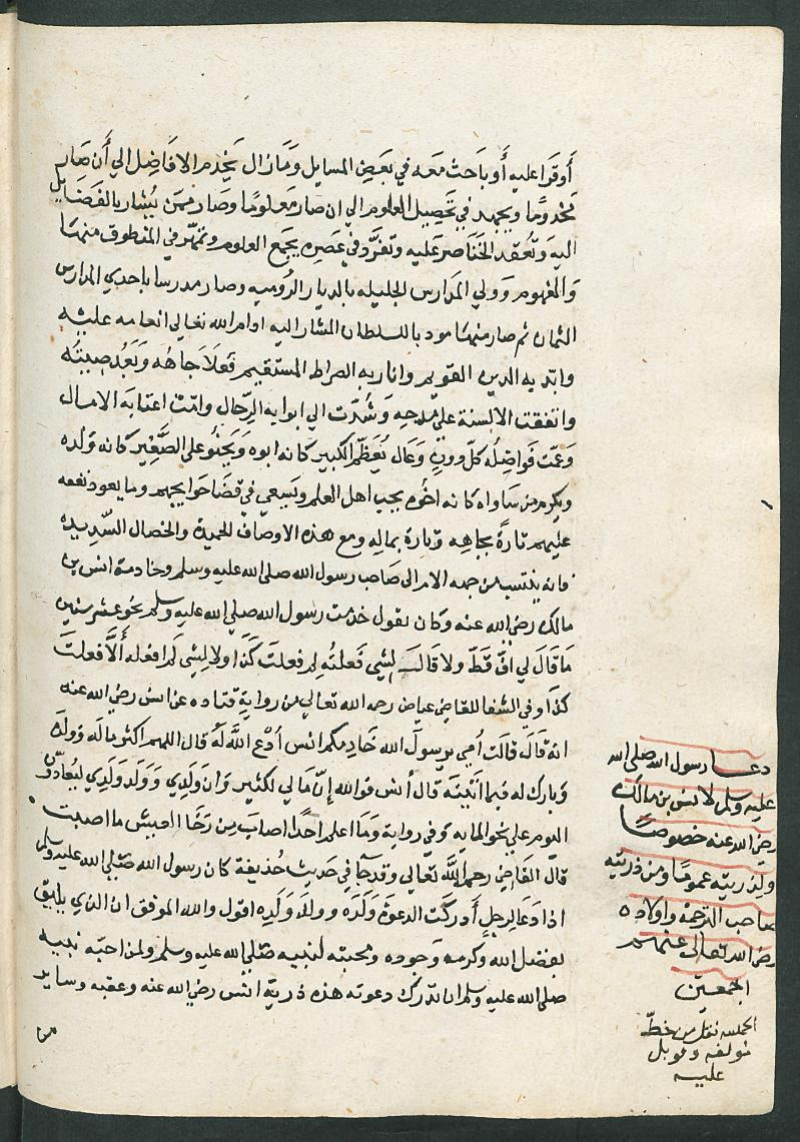 أوقرا عليه أو باحث معه في بعض المسايل ومازال يخدم الافاضل الي أن صار
مخدوما ويجهد في تحصيل العلوم الي ان صار معلوما وصار ممن يشار بالفضايل
اليه وتعقد الخناصر عليه وتفرد في عصره بجمع العلوم وتمهر في المنطوق منها
والمفهوم وولي المدارس الجليله بالديار الروميه وصار مدرسا باحدي المدارس
الثمان ثم صار منها مودبا للسلطان المشار اليه ادام الله تعالي انعامه عليه
وايد به الدين القويم وانار به الصراط المستقيم فعلا جاهه وبعد صيته
واتفقت الالسنة علي مدحه وشدت الي ابوابه الرحال وامت اعتابه الامال
وعمت فواضله كل دون وعال يعظم الكبير كانه ابوه ويحنو علي الصغير كانه ولده
ويكرم من ساواه كانه اخوه يحب اهل العلم ويسعي في قضا حوايجهم وما يعود نفعه
عليهم تارة بجاهه وتارة بماله ومع هذه الاوصاف الحميدة والخصال السديده
فانه ينتسب من جهه الام الي صاحب رسول الله صلي الله عليه وسلم وخادمه انس بن
مالك رضي الله عنه وكان يقول خدمت رسول الله صلي الله عليه وسلم نحو عشر سنين
ما قال لي اف قط ولا قال لشي فعلته لم فعلت كذا ولا لشي لم افعله ألا فعلت
كذا وفي الشفا للقاضي عياض رحمه الله تعالي من رواية قتاده عن انس رضي الله عنه
انه قال قالت أمي يرسول الله خادمك انس أدع الله له قال اللهم اكثر ماله وولده
وبارك له فيما اتيته قال أنس فوالله إن مالي لكثير وان ولدي وولد ولدي ليعادون
اليوم علي نحو المايه وفي رواية وما اعلم احدا اصاب من رخا العيش ما اصبت
قال القاضي رحمه الله تعالي وقد جآ في حديث حذيفة كان رسول الله صلي الله عليه وسلم
اذا دعا لرجل أدركت الدعوة ولده وولد ولده اقول والله الموفق ان الذي يليق
بفضل الله وكرمه وجوده ومحبته لنبيه صلي الله عليه وسلم ولمن احبه نبيه
صلي الله عليه وسلم ان تدرك دعوته هذه ذرية انس رضي الله عنه وعقبه وساير
دعا رسول الله صلي الله
عليه وسلم لانس بن مالك
رضي الله عنه خصوصا
ولذريته عموما ومن ذريته
صاحب الترجمة واولاده
رضي الله تعالي عنهم
اجمعين
الحمد لله نقل من خط
مولفه وقوبل
عليه